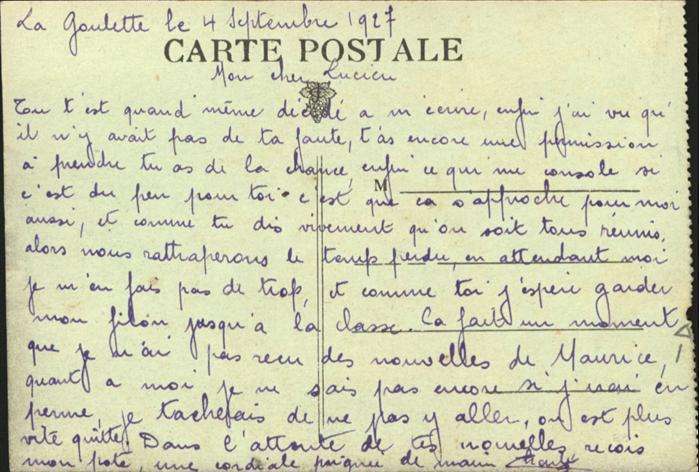 La Goulette le 4 Septembre 1927
CARTE POSTALE
Mon cher Lucien
Tu t'est quand même décidé a m'écrire, enfin j'ai vu qu'
il n'y avait pas de ta faute, t'as encore une permission
à prendre tu as de la chance, enfin ce qui me console si
M
c'est du peu pour toi c'est que ca s'approche pour moi
aussi, et comme tu dis vivement qu'on soit tous réunis,
alors nous rattraperons le temps perdu, en attendant moi
je m'en fais pas de trop, et comme toi j'espère garder
mon filon jusqu'à la classe. Ca fait un moment
que je n'ai pas recu des nouvelles de Maurice,
quant a moi je ne sais pas encore si j'irai en
perme, je tacherais de ne pas y aller, on est plus
vite quitte. Dans l'attente de tes nouvelles recois
mon pote, une cordiale poignee de main